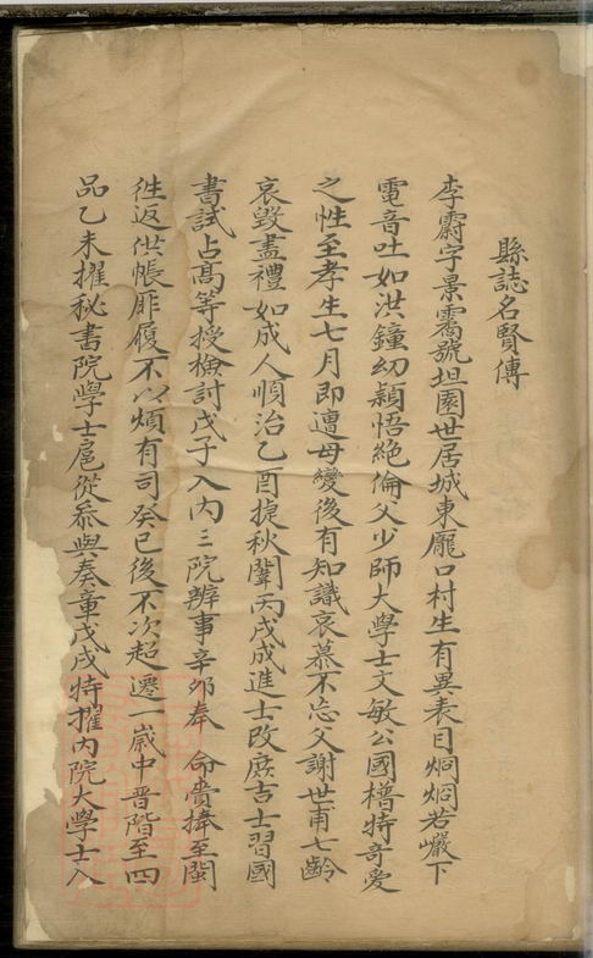 縣誌名賢傳
李霨字景霱號坦園世居城東龐口村生有異表目炯炯若巖下
電音吐如洪鐘幼穎悟絕倫父少師大學士文敏公國𣚴特奇愛
之性至孝生七月即遭母變後有知識哀慕不忘父謝世甫七齡
哀毀盡禮如成人順治乙酉捷秋闈丙戌成進士改庶吉士習國
書試占高等授檢討戊子入内三院辦事辛卯奉 命賫捧至閩
徃返供帳屝履不以煩有司癸巳後不次超遷一歲中晋階至四
品乙未擢秘書院學士扈從叅與奏章戊戌特擢内院大學士入